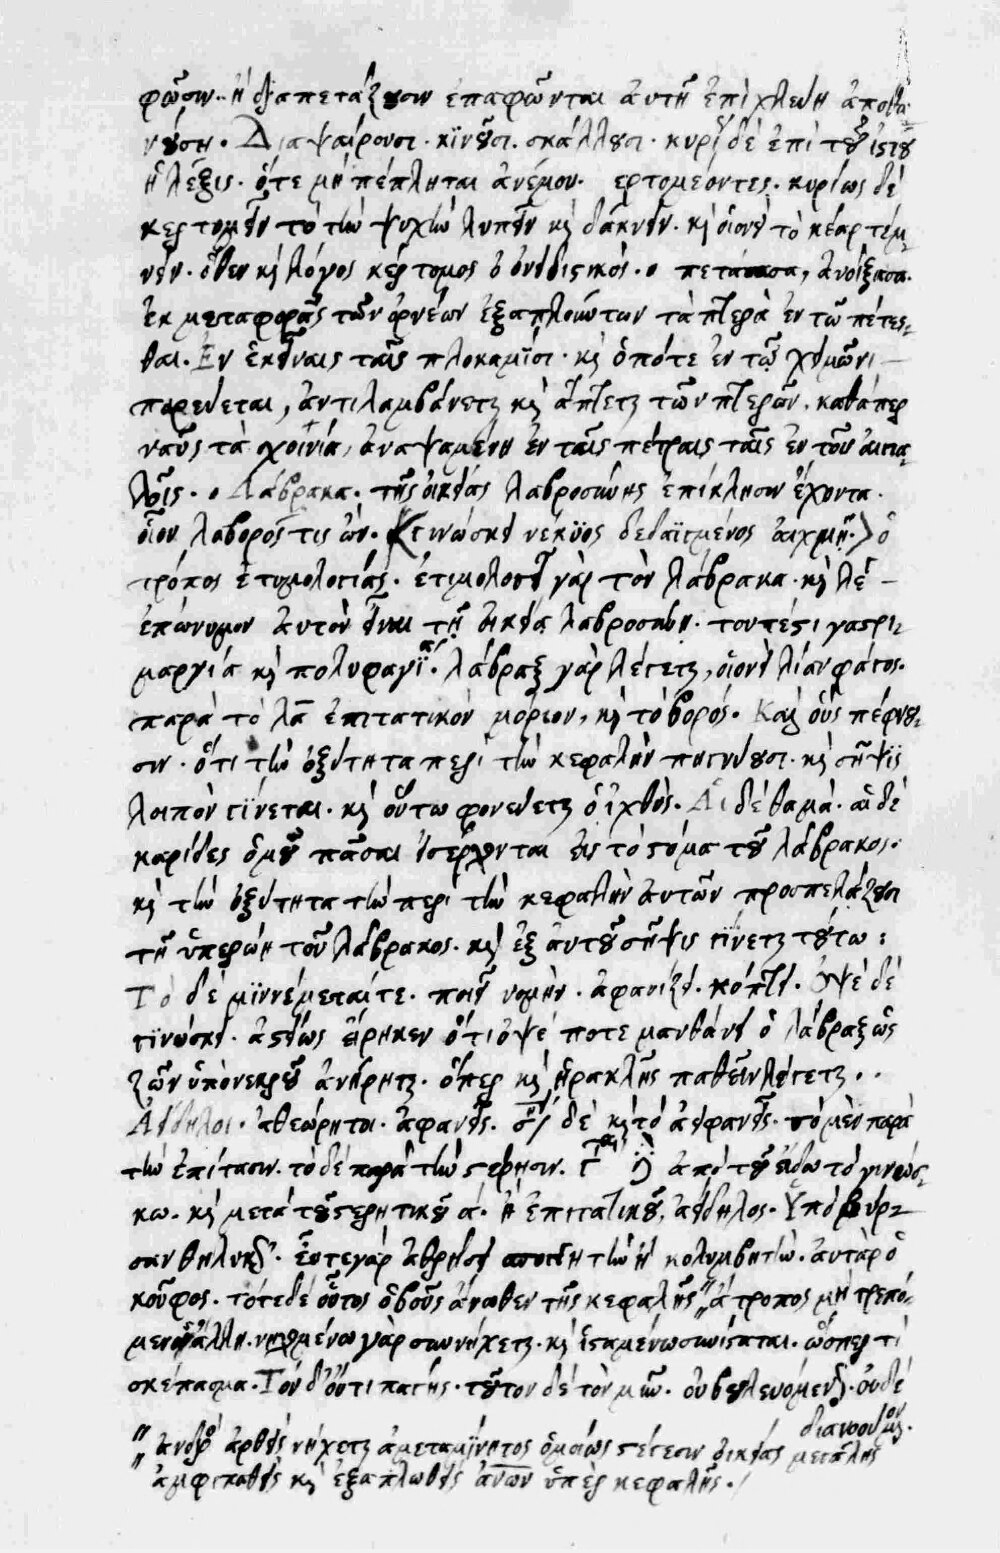 φῶσιν. ἢ διαπετάζουσιν ἐπαφῶνται αὐτῆ ἐπὶ χλεύη ἀποθα
νούση. Διαψαίρουσι. κινοῦσι. σκάλλουσι. κυρί δὲ ἐπὶ τοῦ ἱστοῦ
ἡ λέξις. ὅτε μὴ πέπληται ἀνέμου. ερτομέοντες. κυρίως δὲ
κερτομεῖν τὸ τὴν ψυχὴν λυπεῖν κὶ δάκνειν. κὶ οἱονεὶ τὸ κέαρ τέμ
νειν. ὅθεν κὶ λόγος κέρτομος ὁ ὀνειδιστικός. πετάσασα, ἀνοίξασα.
ἐκ μεταφορᾶς τῶν ὀρνέων ἐξαπλούντων τὰ πτερὰ ἐν τῶ πέτεσ
θαι. Ἐν ἐκείναις ταῖς πλοκαμῖσι. κὶ ὁπότε ἐν τῶ χειμῶνι
πορεύεται, ἀντιλαμβάνεται κὶ ἅπτεται τῶν πτερῶν. καθάπερ
ναῦς τὰ σχοινία, ἀναψαμένη ἐν ταῖς πέτραις ταῖς ἐν τοῖς αἰγια
λοῖς. Λάβρακα. τῆς οἰκείας λαβροσύνης ἐπίκλησιν ἔχοντα.
οἷον λαβορός τις ὤν. γινώσκει νέκυος δεδαϊγμένος αἰχμῇ. ὁ
τρόπος ἐτυμολογίας. ἐτιμολογεῖ γὰρ τὸν λάβρακα. κὶ λέ
ἐπώνυμον αὐτὸν εἶναι τῇ οἰκεία λαβροσύνη. τουτέστι γαστρι
μαργία κὶ πολυφαγίᾳ. λάβραξ γὰρ λέγεται, οἱονεὶ λίαν φάγος.
παρὰ τὸ λα ἐπιτατικὸν μόριον, κὶ τὸ βορός. Καὶ οὓς πέφνου
σιν. ὅτι τὴν ὀξύτητα περὶ τὴν κεφαλὴν πηγνύουσι. κὶ σῆψις
λοιπὸν γίνεται. κὶ οὕτω φονεύεται ὁ ἰχθύς. Αἱ δὲ θαμά. αἱ δὲ
καρίδες ὁμοῦ πᾶσαι εἰσέρχονται εἰς τὸ στόμα τοῦ λάβρακος.
κὶ τὴν ὀξύτητα τὴν περὶ τὴν κεφαλὴν αὐτῶν προσπελάζουσι
τῇ ὑπερώη τοῦ λάβρακος. κὶ ἐξ αὐτοῦ σῆψις γίνεται τούτω :
Τὸ δέ μιν νέμεται γε. ποιεῖ νομήν. ἀφανίζει. κόπτει. Ὀψὲ δὲ
γινώσκει. ἀστείως εἴρηκεν ὅτι ὀψέ ποτε μανθάνει ὁ λάβραξ ὡς
ζῶν ὑπὸ νεκροῦ ἀνήρηται. ὅπερ κὶ ἡρακλῆς παθεῖν λέγεται..
Ἀείδηλοι. ἀθεώρητοι. ἀφανεῖς. ση δὲ κὶ τὸ ἀεφανεῖς. τὸ μὲν παρὰ
τὴν ἐπίτασιν. τὸ δὲ παρὰ τὴν στέρησιν. ἀπὸ τοῦ εἴδω τὸ γινώσ
κω. κὶ μετὰ τοῦ στερητικοῦ α. ἢ ἐπιτατικοῦ, ἀείδηλος. Ὑπὸ βύρ
σαν θηλυκ. εὖτε γὰρ ἀθρήσει τὴν κολυμβητὴν. αὐτὰρ ὁ
κοῦφος. τότε δὲ οὗτος ὁ βοῦς ἄνωθεν τῆς κεφαλῆς ἄτροπος μὴ τρεπό
μενος ἄλλη. νηχομένω γὰρ συννήχεται. κὶ ἱσταμένω συνίσταται. ὥσπερ τὶ
σκέπασμα. Τὸν δ' οὔτι παγῆς. τοῦτον δὲ τὸν μῦν. οὐ βουλευόμενος. οὐδὲ
διανοούμ.
ἀρθεὶς νήχεται ἀμετακίνητος ὁμοίως στέγεσιν οἰκείας μεγάλης
ἀμφιταθεὶς κὶ ἐξαπλωθεὶς ἀνων ὑπὲρ κεφαλῆς.